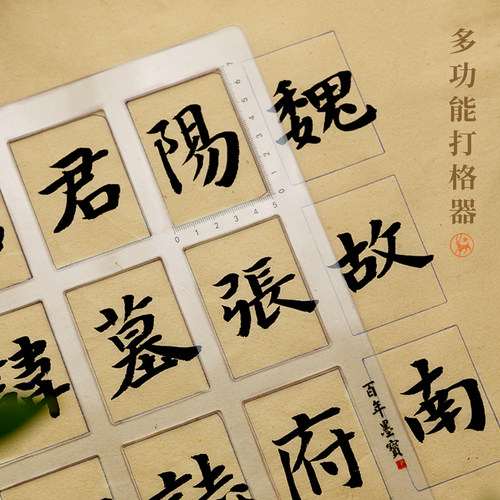 多功能打格器
魏故南
陽張府
君墓誌
諱
百年墨寶
0 1 2 3 4 5
0 1 2 3 4 5 6 7